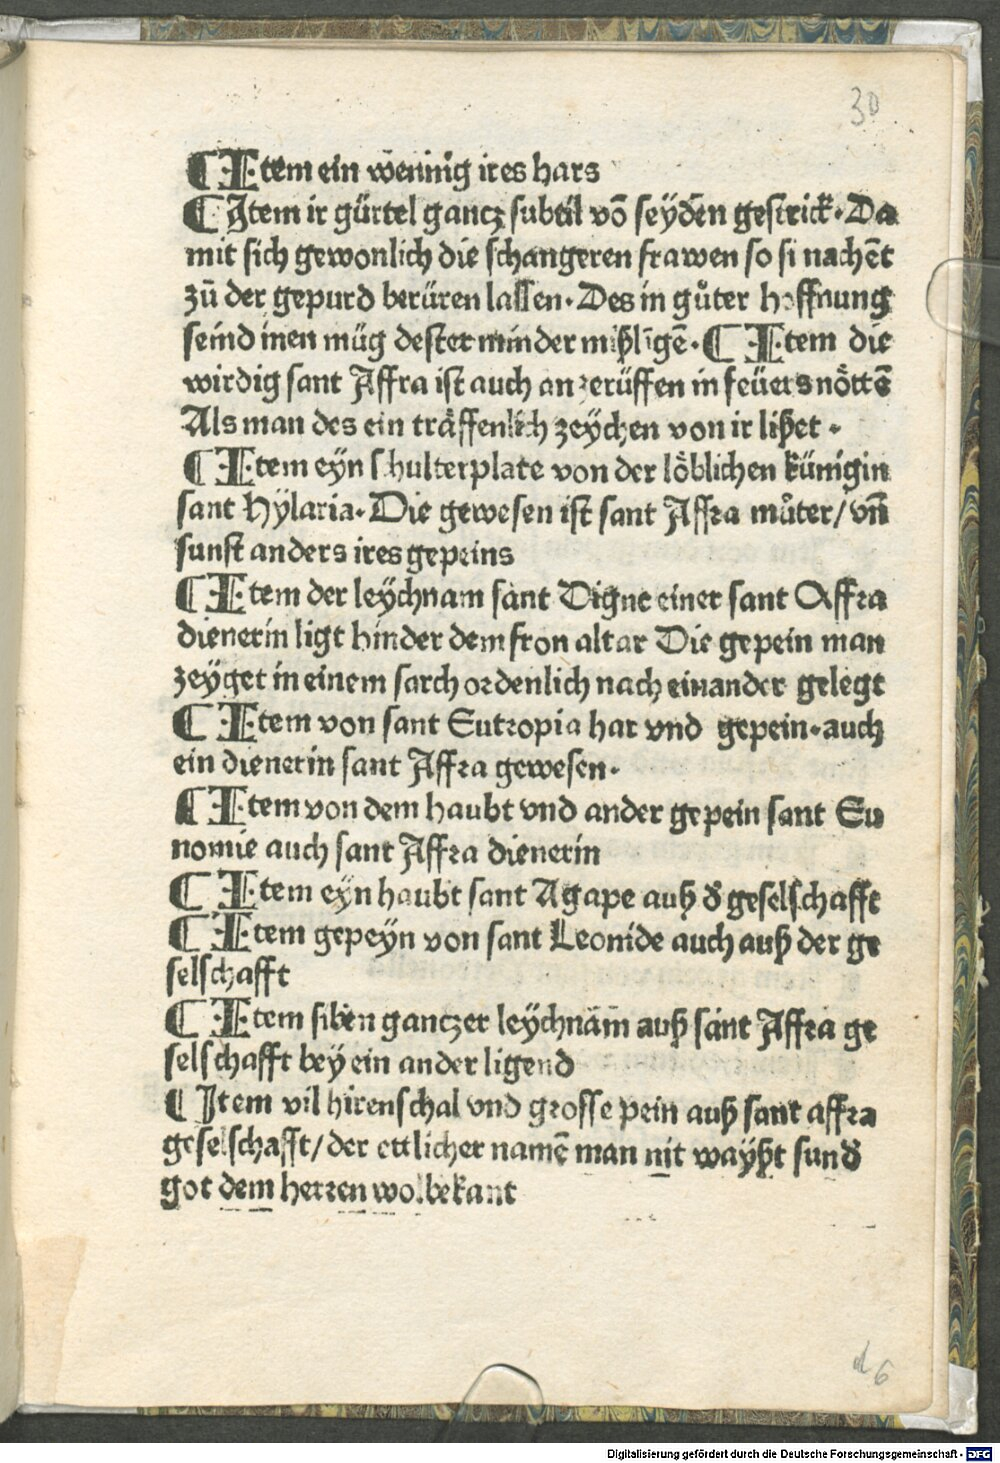 30
¶ Item ein wennig ires hars
¶ Item ir gürtel gancz subtil võ seyden gestrick. Da
mit sich gewonlich die schangeren frawen so si nachẽt
zů der gepurd berüren lassen. Des in gůter hoffnung
seind inen müg dester minder mißligẽ. ¶ Item die
wirdig sant Affra ist auch an zerüffen in feüers nöttẽ
Als man des ein träffenlich zeychen von ir lißet.
¶ Item eyn schulterplate von der löblichen künigin
sant Hylaria. Die gewesen ist sant Affra můter/ vñ
sunst anders ires gepeins
¶ Item der leychnam sant Digne einer sant Affra
dienerin ligt hinder dem fron altar Die gepein man
zeyget in einem sarch ordenlich nach einander gelegt
¶ Item von sant Eutropia har vnd gepein. auch
ein dienerin sant Affra gewesen.
¶ Item von dem haubt vnd ander gepein sant Eu
nomie auch sant Affra dienerin
¶ Item eyn haubt sant Agape auß d̕ geselschafft
¶ Item gepeyn von sant Leonide auch auß der ge
selschafft
¶ Item siben ganczer leychnäm auß sant Affra ge
selschafft bey ein ander ligend
¶ Item vil hirenschal vnd grosse pein auß sant affra
geselschafft/ der ettlicher namẽ man nit wayßt sund̕
got dem herren wol bekant
d 6
Digitalisierung gefördert durch die Deutsche Forschungsgemeinschaft - DFG